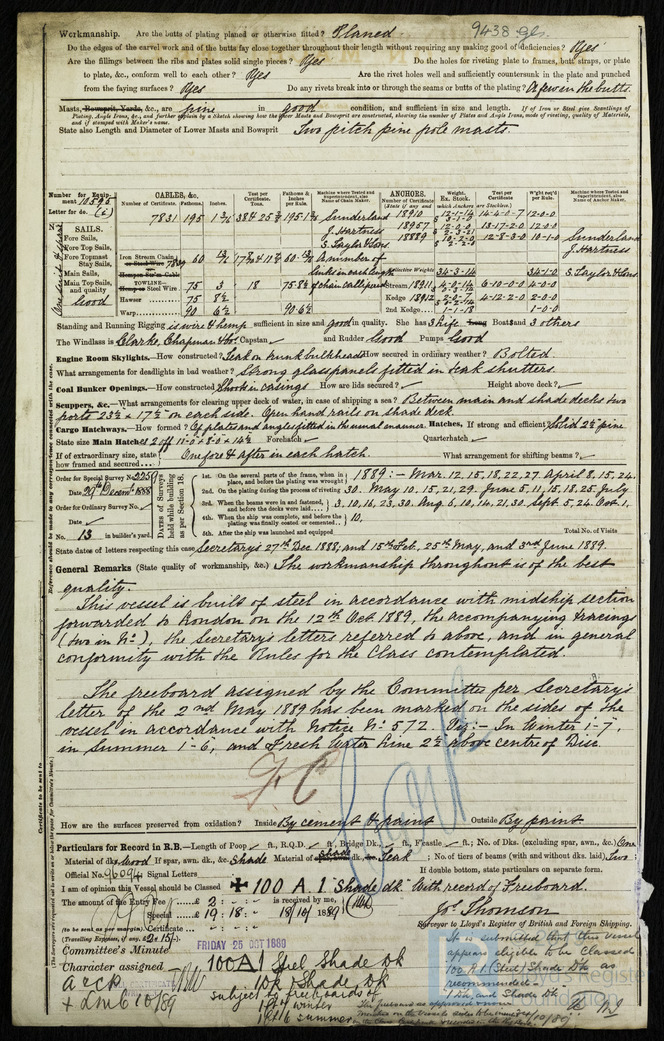 9438 gls.
Workmanship. Are the butts of plating planed or otherwise fitted? Planed
Do the edges of the carvel work and of the butts fay close together throughout their length without requiring any making good of deficiencies? Yes
Are the fillings between the ribs and plates solid single pieces? Yes Do the holes for riveting plate to frames, butt straps, or plate
to plate, &c., conform well to each other? Yes Are the rivet holes well and sufficiently countersunk in the plate and punched
from the faying surfaces? Yes Do any rivets break into or through the seams or butts of the plating? A few in the butts.
Masts, Bowsprit, Yards, &c., are pine in good condition, and sufficient in size and length. If of Iron or Steel give Scantlings of
Plating, Angle Irons, &c., and further explain by a Sketch showing how the lower Masts and Bowsprit are constructed, showing the number of Plates and Angle Irons, mode of riveting, quality of Materials,
and if stamped with Maker's name.
State also Length and Diameter of Lower Masts and Bowsprit Two pitch pine pole masts.
Number for Equipment 10595
Letter for do. (c)
CABLES, &c.
Number of Certificate. Fathoms. Inches. Test per Certificate, Tons. Fathoms & Inches per Rule. Machine where Tested and Superintendent, also Name of Chain Maker.
ANCHORS.
Number of Certificate Weight. Ex. Stock. Test per Certificate Wght req'd per Rule. Machine where Tested and Superintendent, also Name of Anchor Maker.
7831 195 Sunderland 18910 14-4-0-7 12-0-0
J. Hartness 18957 13-17-2-0 12-0-0
S. Taylor & Sons 18889 12-8-3-0 10-1-0 Sunderland
J. Hartness
S. Taylor & Sons
SAILS.
Fore Sails,
Fore Top Sails,
Fore Topmast Stay Sails,
Main Sails,
Main Top Sails,
and quality
Good
Iron Stream Chain or Steel Wire 60 A number of
Hempen Strm Cable links in each length
TOWLINE- Hemp or Steel Wire 75 3 18 of chain callipered
Hawser 75 8½
Warp 90 6½ 90-6½
34-3-14 34-1-0
Stream 18911 6-10-0-0 4-0-0
Kedge 18912 4-12-2-0 2-0-0
2nd Kedge 1-1-18 1-0-0
Standing and Running Rigging is wire & hemp sufficient in size and good in quality. She has 3 life Long Boats and 3 others
The Windlass is Clarke, Chapman & Co. Capstan ✓ and Rudder Good Pumps Good
Engine Room Skylights.—How constructed? Teak on trunk bulkheads How secured in ordinary weather? Bolted.
What arrangements for deadlights in bad weather? Strong glass panels fitted in teak shutters.
Coal Bunker Openings.—How constructed How are lids secured? ✓ Height above deck? ✓
Scuppers, &c.—What arrangements for clearing upper deck of water, in case of shipping a sea? Between main and shade decks two
ports 23½ × 17½" on each side. Open hand rails on shade deck.
Cargo Hatchways.—How formed? Of plates and angles fitted in the usual manner. Hatches, If strong and efficient? Solid 2½ pine.
State size Main Hatches Forehatch ✓ Quarterhatch ✓
If of extraordinary size, state how framed and secured One fore & after in each hatch. What arrangement for shifting beams? ✓
Order for Special Survey No. 2259
Date 29th Decemr. 1888
Order for Ordinary Survey No. ✓
Date ✓
No. 13 in builder's yard.
DATES of Surveys held while building as per Section 18.
1st. On the several parts of the frame, when in place, and before the plating was wrought 1889:- Mar. 12, 15, 18, 22, 27. April 8, 15, 24.
2nd. On the plating during the process of riveting 30. May 10, 15, 21, 29. June 5, 11, 15, 18, 25. July
3rd. When the beams were in and fastened, and before the decks were laid 3, 10, 16, 23, 30. Aug 6, 10, 14, 21, 30. Sept. 5, 24. Oct. 1,
4th. When the ship was complete, and before the plating was finally coated or cemented 10.
5th. After the ship was launched and equipped Total No. of Visits
State dates of letters respecting this case Secretary's 27th Dec 1888, and 15th Feb. 25th May, and 3rd June 1889.
General Remarks (State quality of workmanship, &c.) The workmanship throughout is of the best
quality.
This vessel is built of steel in accordance with midship section
forwarded to London on the 12th Oct. 1889, the accompanying tracings
(two in No.), the Secretary's letters referred to above, and in general
conformity with the Rules for the Class contemplated.
The freeboard assigned by the Committee per Secretary's
letter of the 2nd May 1889 has been marked on the sides of the
vessel in accordance with Notice No. 572. Viz:- In Winter 1-7,
in Summer 1-6, and Fresh Water Line 2½ above centre of Disc.
How are the surfaces preserved from oxidation? Inside By cement & paint Outside By paint
Particulars for Record in R.B.—Length of Poop ✓ ft., R.Q.D. ✓ ft., Bridge Dk. ✓ ft., Fcastle ✓ ft.; No. of Dks. (excluding spar, awn., &c.) One
Material of dks Wood If spar, awn. dk., &c. Shade Material of shade dk. Teak; No. of tiers of beams (with and without dks. laid) Two;
Official No. 96094 Signal Letters If double bottom, state particulars on separate form.
I am of opinion this Vessel should be Classed ✠ 100 A.1 "Shade dk" With record of Freeboard.
The amount of the Entry Fee £ 2: -: - is received by me,
Special £ 19: 18: - 18/10/1889
(to be sent as per margin). Certificate
(Travelling Expenses, if any, £2. 15/-).
Jos. Thomson
Surveyor to Lloyd's Register of British and Foreign Shipping.
Committee's Minute FRIDAY 25 OCT 1889
Character assigned 100A1 Steel Shade Dk
1Dk & Shade Dk
Subject to freeboards of
1ft 7 winter
1ft 6 summer
+ LMC 10/89
It is submitted that this vessel
appears eligible to be Classed
100 A.1 (Steel) Shade Dk as
recommended.
1 Dk and Shade Dk